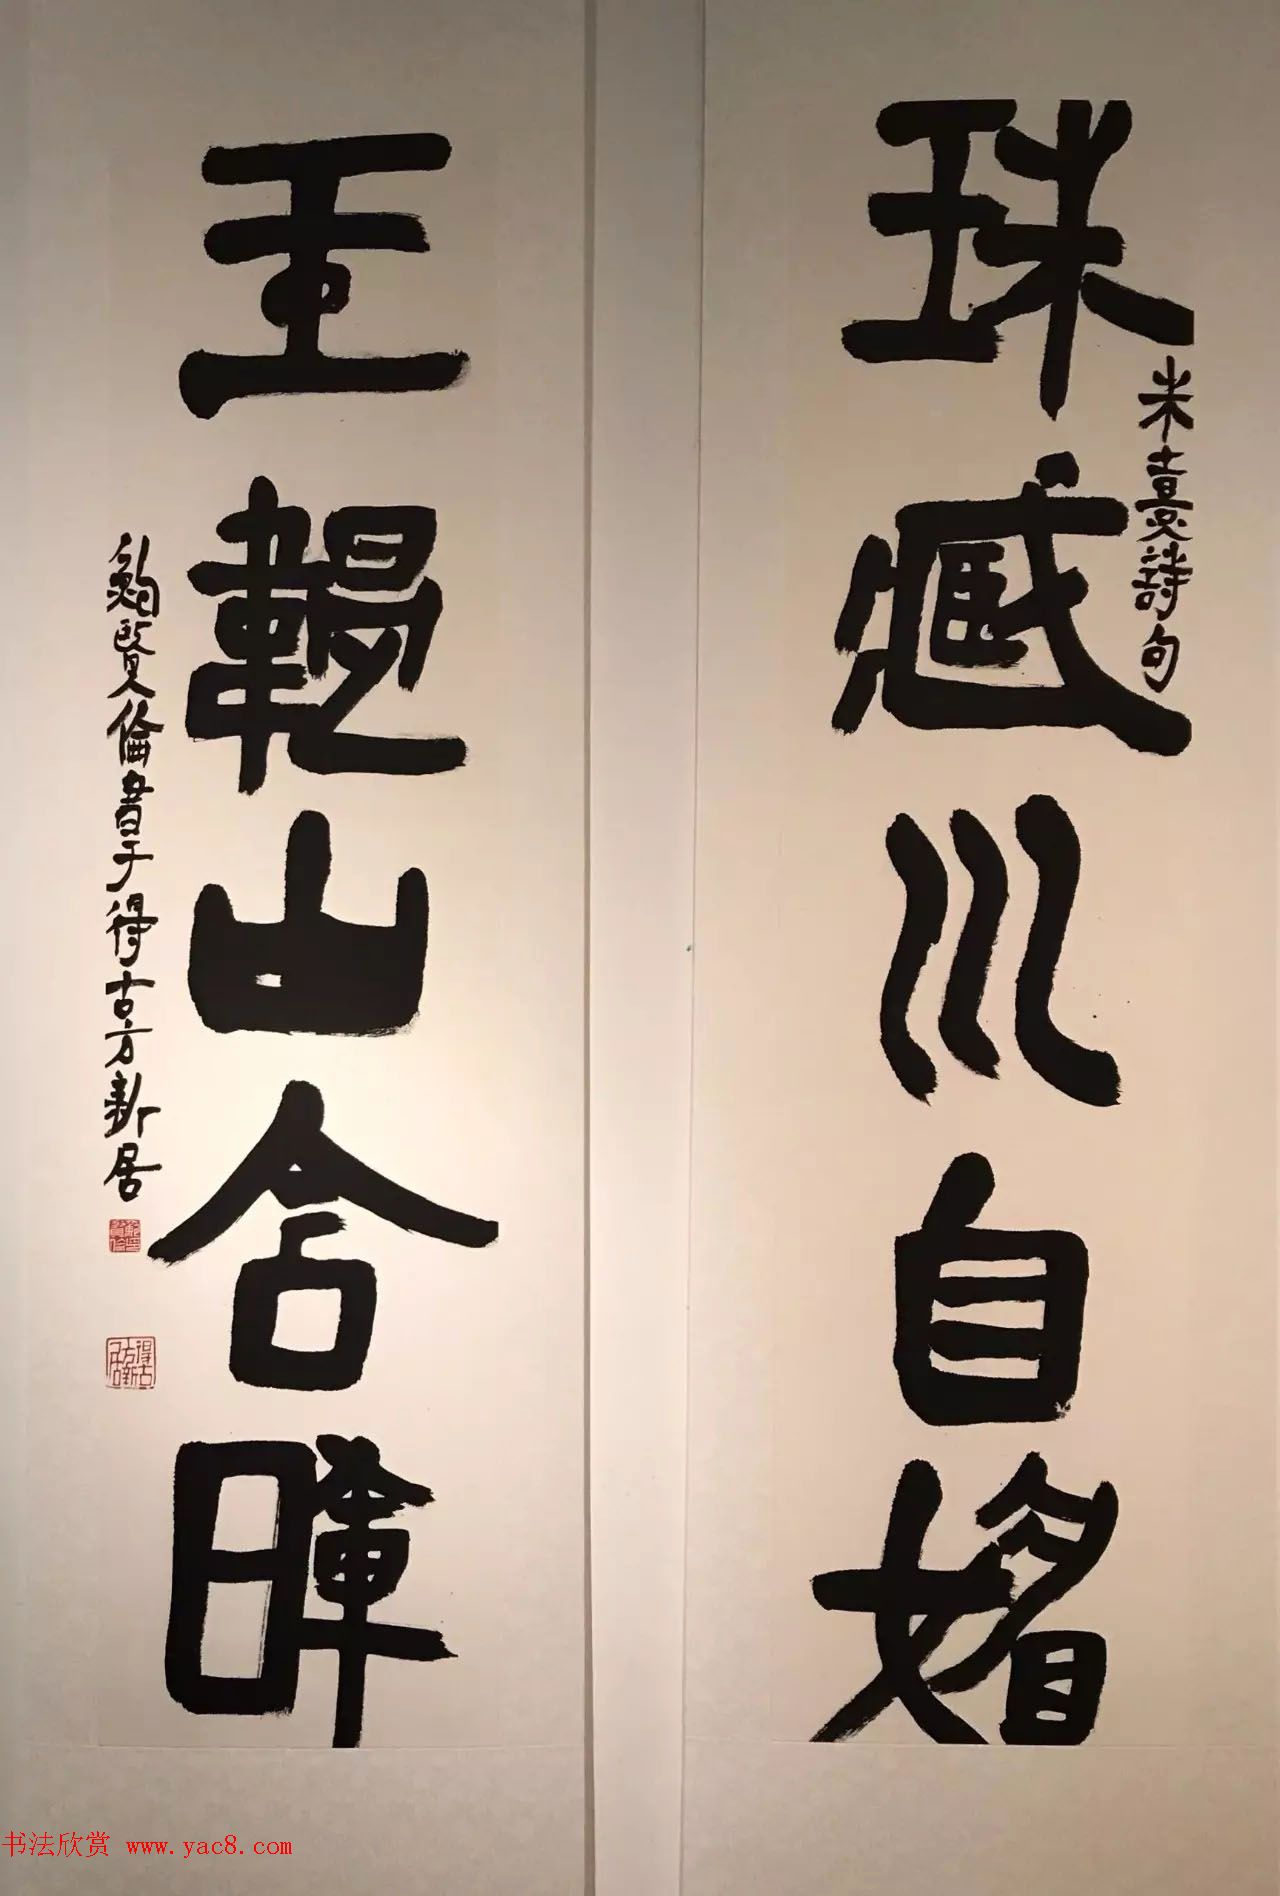 珠臧川自媚
朱熹詩句
玉韞山含暉
鮑賢倫書于得古方新居
得古方新居
书法欣赏 www.yac8.com